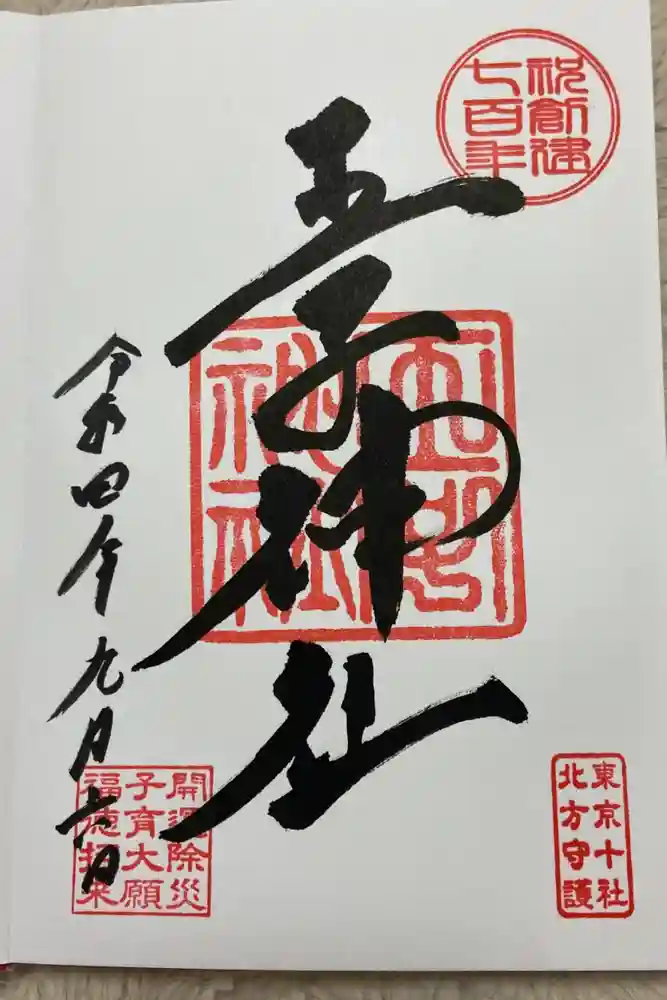 祝創建
七百年
王子神社
王子
神社
令和四年九月六日
開運除災
子育大願
福徳招来
東京十社
北方守護